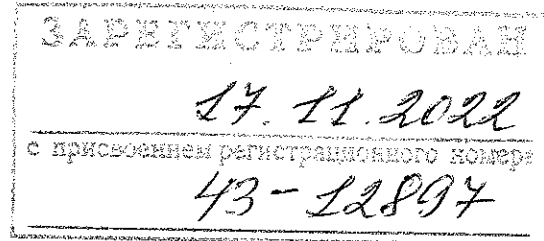 ЗАРЕГИСТРИРОВАН
17.11.2022
с присвоением регистрационного номера
43-12897